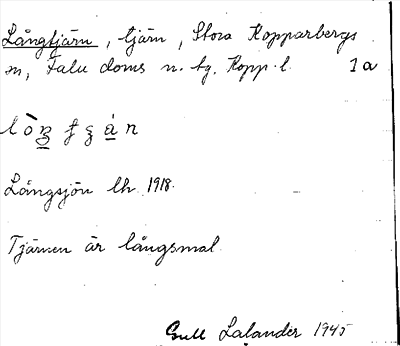 Långtjärn, tjärn, Stora Kopparbergs
sn, Falu doms n. tg. Kopp. l. 1a
Långsjön lh 1918.
Tjärnen är långsmal.
Gull Lalander 1945